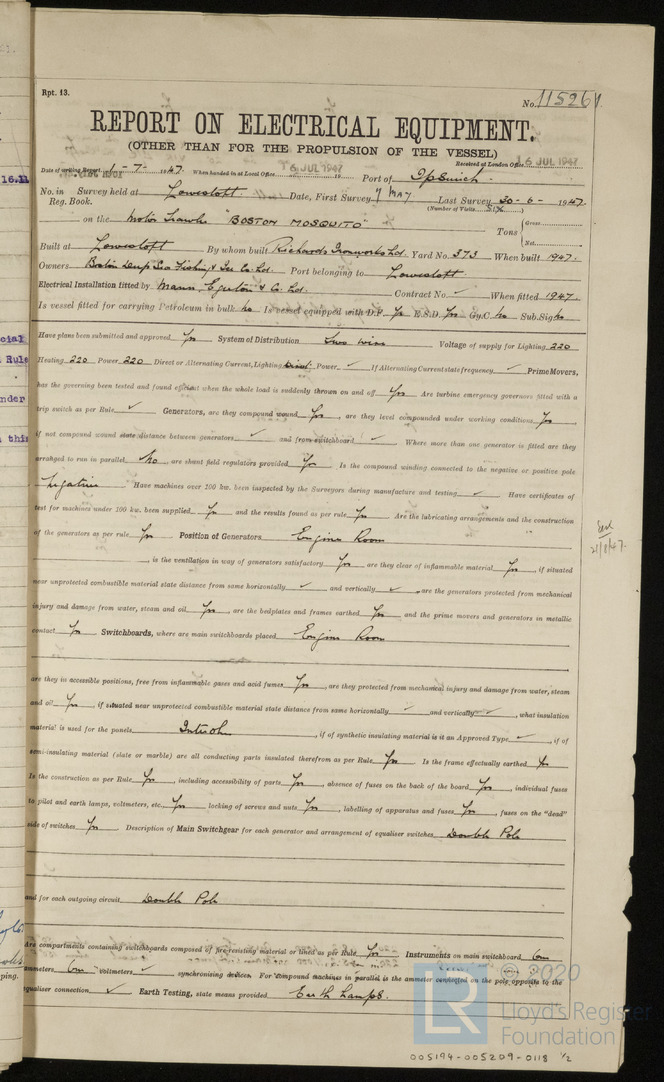 Rpt. 13.
No. 115261
REPORT ON ELECTRICAL EQUIPMENT.
(OTHER THAN FOR THE PROPULSION OF THE VESSEL)
Received at London Office 16 JUL 1947
Date of writing Report 1-7-1947. When handed in at Local Office 16 JUL 1947 19 Port of Ipswich.
No. in Survey held at Lowestoft. Date, First Survey 7 MAY Last Survey 30-6-1947.
Reg. Book. (Number of Visits SIX )
on the Motor Trawler "BOSTON MOSQUITO" Tons { Gross Net
Built at Lowestoft By whom built Richards Ironworks Ld. Yard No. 373 When built 1947.
Owners Boston Deep Sea Fishing & Ice Co. Ld. Port belonging to Lowestoft.
Electrical Installation fitted by Mann, Egerton & Co. Ld. Contract No. ✓ When fitted 1947.
Is vessel fitted for carrying Petroleum in bulk No Is vessel equipped with D.F. Yes E.S.D. Yes Gy.C. No Sub.Sig. No
Have plans been submitted and approved Yes System of Distribution Two wire Voltage of supply for Lighting 220
Heating 220 Power 220 Direct or Alternating Current, Lighting Direct Power ✓ If Alternating Current state frequency ✓ Prime Movers,
has the governing been tested and found efficient when the whole load is suddenly thrown on and off Yes Are turbine emergency governors fitted with a
trip switch as per Rule ✓ Generators, are they compound wound Yes, are they level compounded under working conditions Yes,
if not compound wound state distance between generators ✓ and from switchboard ✓ Where more than one generator is fitted are they
arranged to run in parallel No, are shunt field regulators provided Yes Is the compound winding connected to the negative or positive pole
Negative Have machines over 100 kw. been inspected by the Surveyors during manufacture and testing ✓ Have certificates of
test for machines under 100 kw. been supplied Yes and the results found as per rule Yes Are the lubricating arrangements and the construction
of the generators as per rule Yes Position of Generators Engine Room
, is the ventilation in way of generators satisfactory Yes are they clear of inflammable material Yes, if situated
near unprotected combustible material state distance from same horizontally ✓ and vertically ✓, are the generators protected from mechanical
injury and damage from water, steam and oil Yes, are the bedplates and frames earthed Yes and the prime movers and generators in metallic
contact Yes Switchboards, where are main switchboards placed Engine Room
are they in accessible positions, free from inflammable gases and acid fumes Yes, are they protected from mechanical injury and damage from water, steam
and oil Yes, if situated near unprotected combustible material state distance from same horizontally ✓ and vertically ✓, what insulation
material is used for the panels, if of synthetic insulating material is it an Approved Type ✓, if of
semi-insulating material (slate or marble) are all conducting parts insulated therefrom as per Rule Yes Is the frame effectually earthed Yes
Is the construction as per Rule Yes, including accessibility of parts Yes, absence of fuses on the back of the board Yes, individual fuses
to pilot and earth lamps, voltmeters, etc. Yes locking of screws and nuts Yes, labelling of apparatus and fuses Yes, fuses on the "dead"
side of switches Yes Description of Main Switchgear for each generator and arrangement of equaliser switches Double Pole
and for each outgoing circuit Double Pole
Are compartments containing switchboards composed of fire-resisting material or lined as per Rule Yes Instruments on main switchboard
ammeters voltmeters ✓ synchronising devices. For compound machines in parallel is the ammeter connected on the pole opposite to the
equaliser connection ✓ Earth Testing, state means provided Earth Lamps.
21/8/47.
16.11
cial
Rule
nder
this
ping.
© 2020
LR
Lloyd's Register
Foundation
005194-005209-0118 1/2